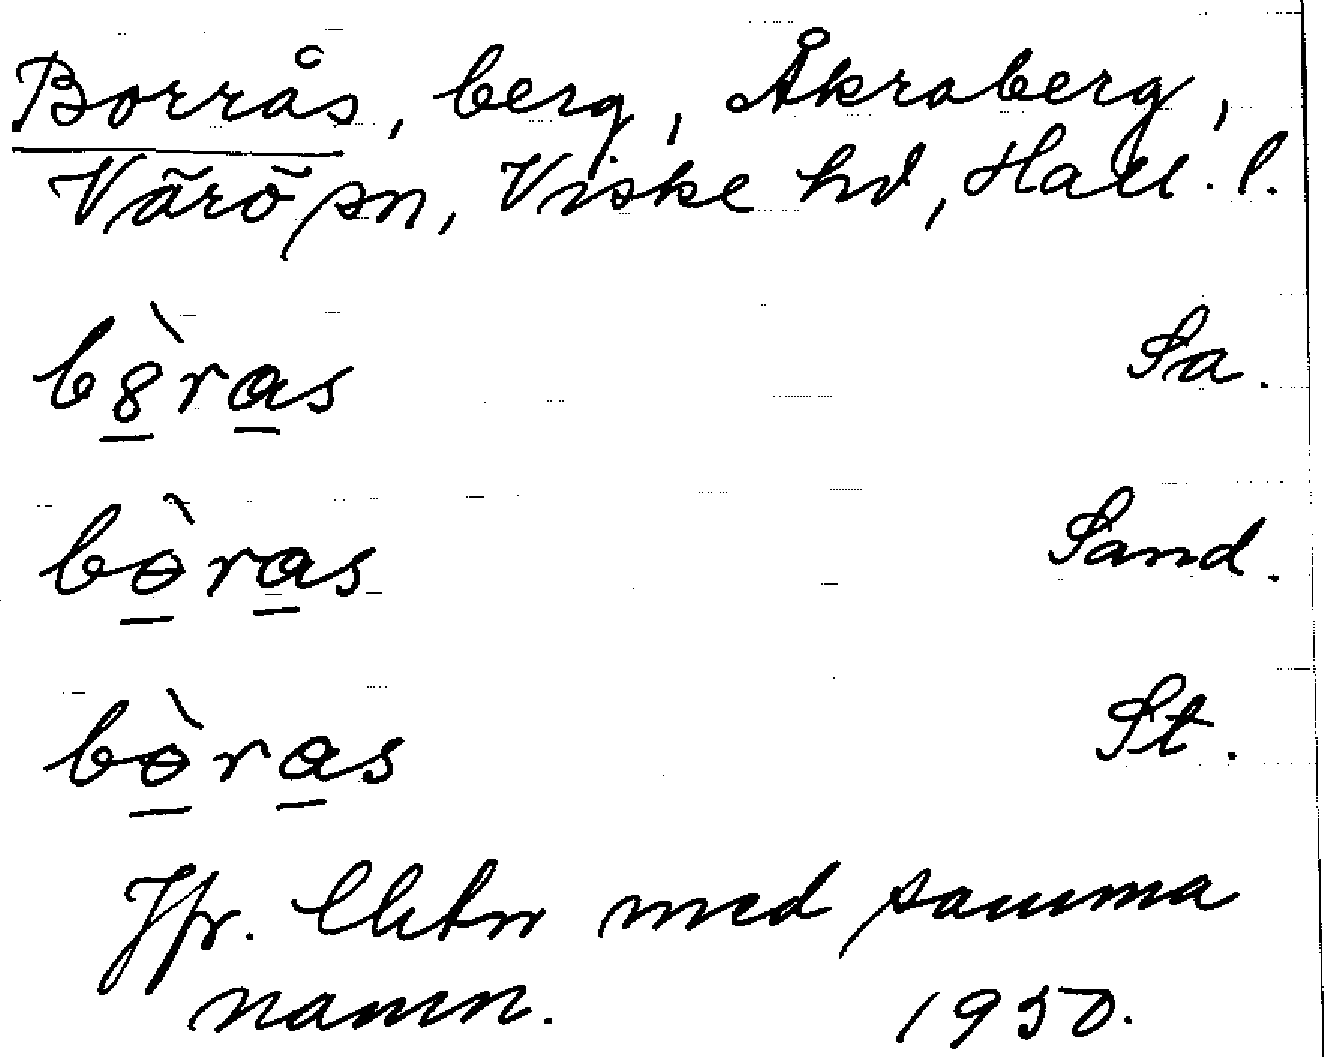 Borrås, berg, Åkraberg,
Värö sn, Viske hd, Hall. l.
bȣ̀ras Sa.
bɵ̀ras Sand.
bɵ̀ras St.
Jfr. med samma
namn. 1950.